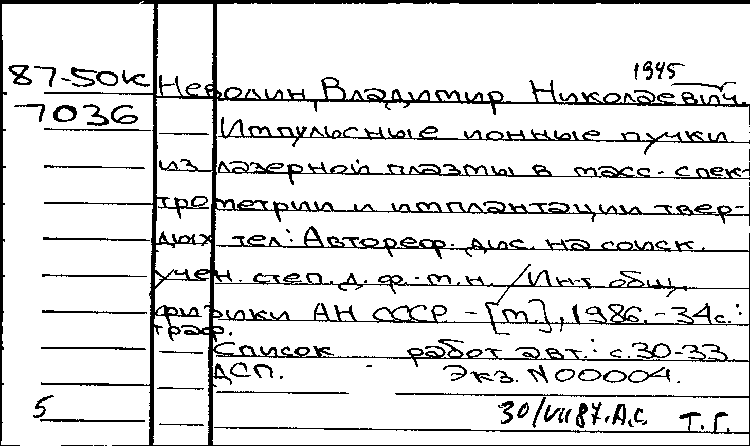 1945
87-50к Неволин, Владимир Николаевич.
7036 Импульсные ионные пучки
из лазерной плазмы в масс-спек-
трометрии и имплантации твер-
дых тел: Автореф. дис. на соиск.
учен. степ. д. ф.-м.н. / Ин-т общ.
физики АН СССР - [М.], 1986. - 34с.:
граф.
Список работ авт.: с.30-33
ДСП. Экз. N 00004.
5 30/VII 87. А.С. Т.Г.